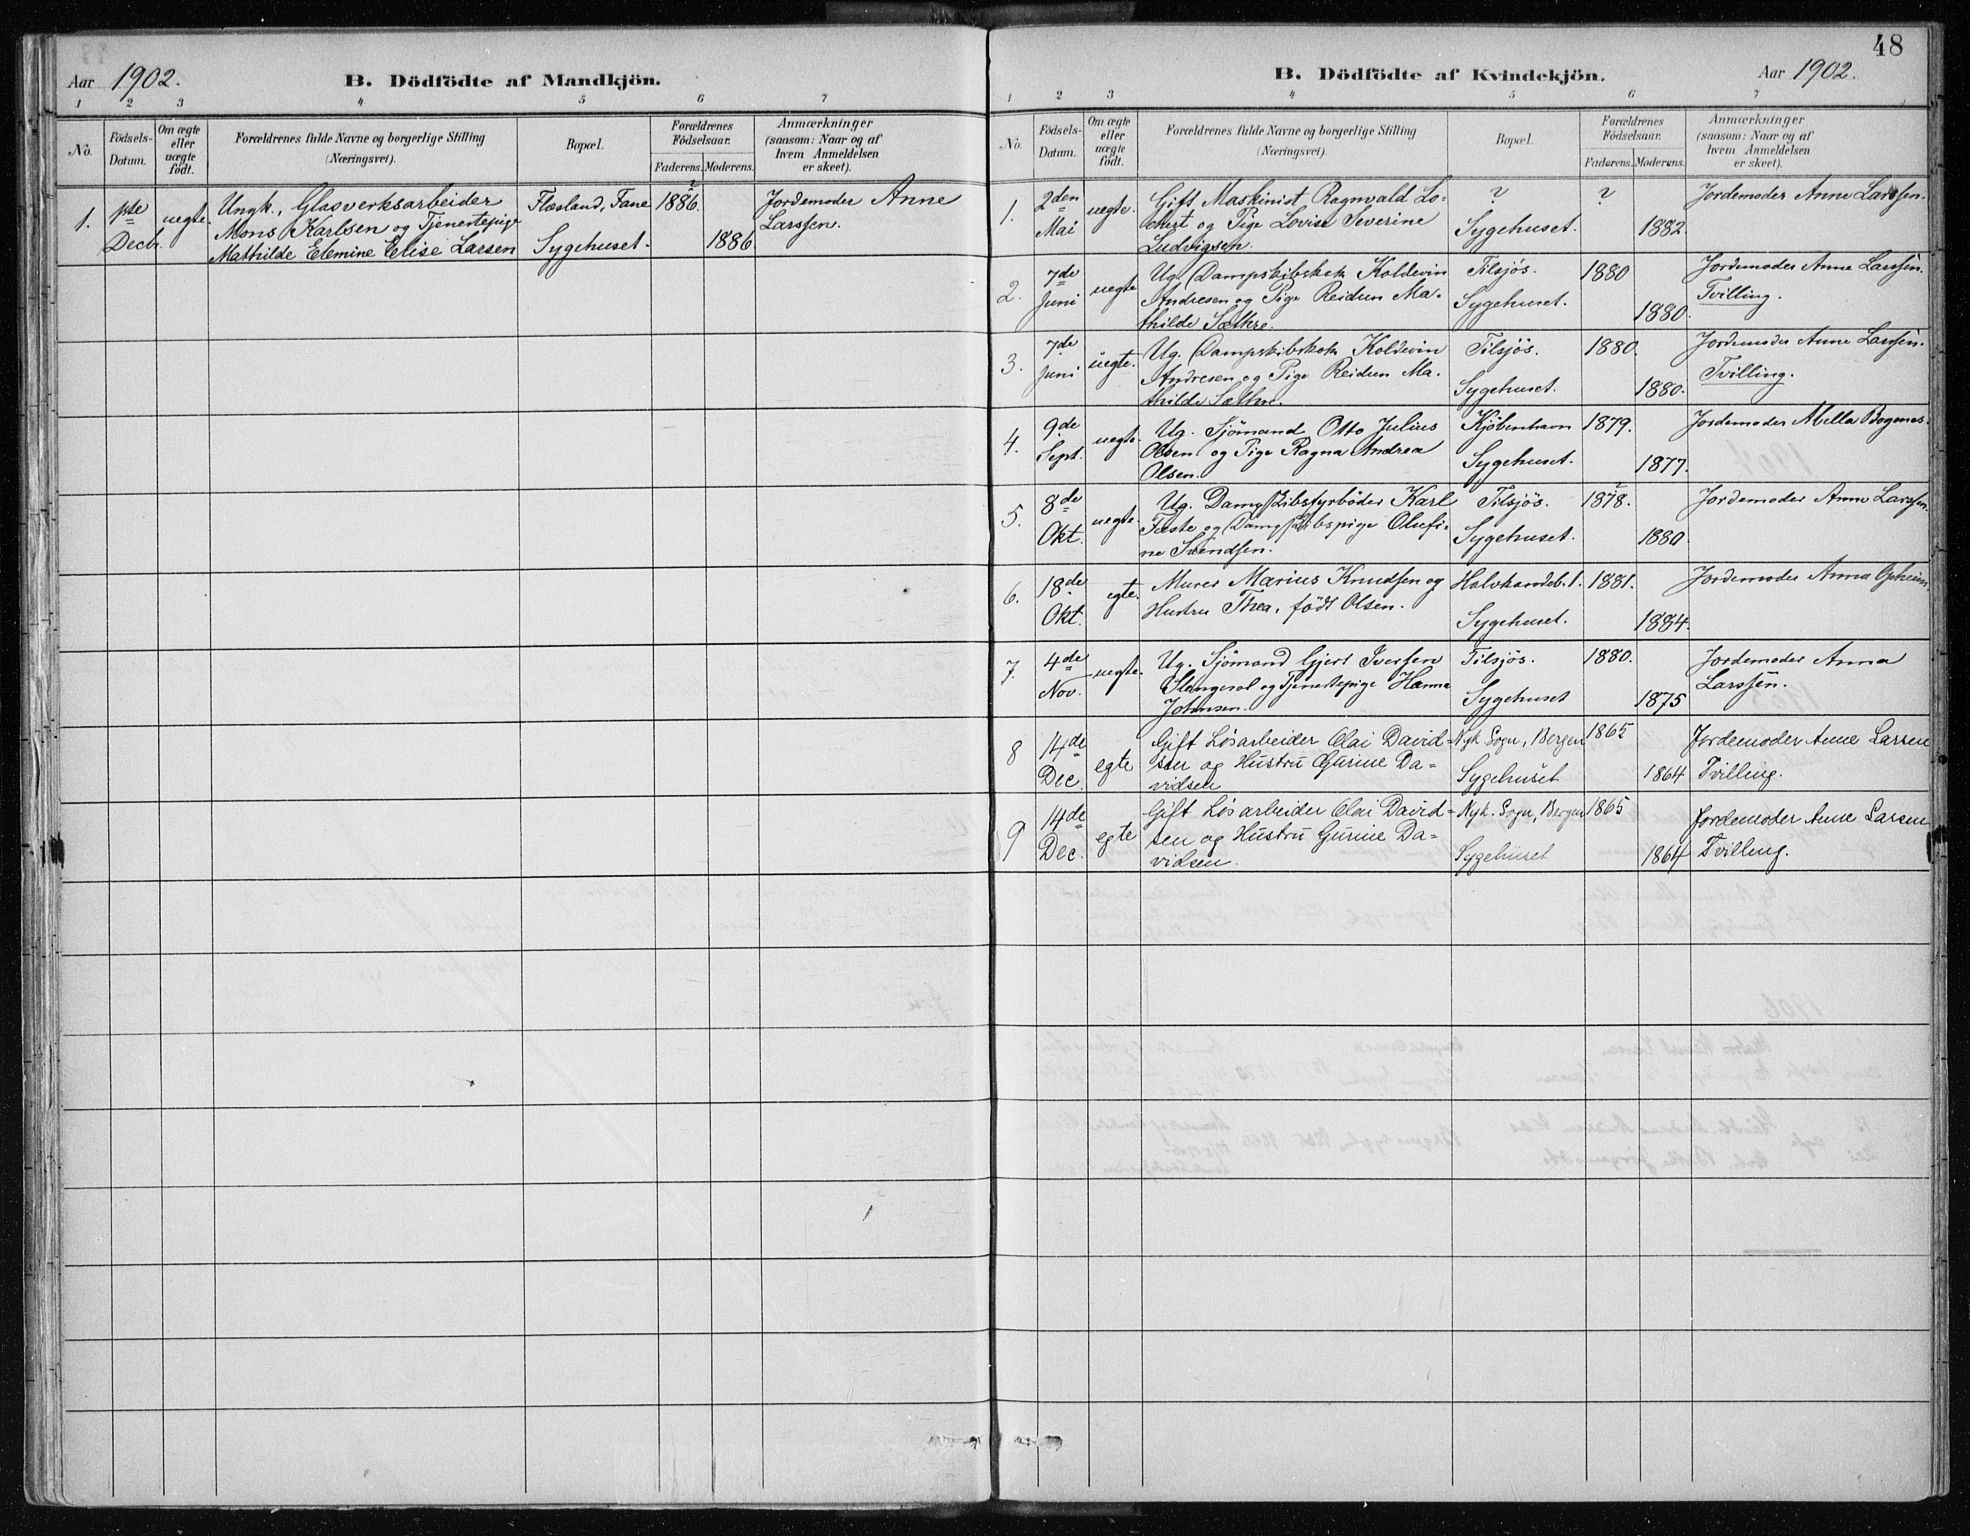 48
Aar 1902.
B. Dödfödte af Mandkjön.
1 2 3 4 5 6 7
No.
Födsels-Datum.
Om ægte eller uægte födt.
Forældrenes fulde Navne og borgerlige Stilling
(Næringsvei).
Bopæl.
Forældrenes Födselsaar.
Faderens. Moderens.
Anmærkninger
(saasom: Naar og af
hvem Anmeldelsen
er skeet).
1. 1ste Decb. uegte. Ungk., Glasverksarbeider Flæsland, Fane ? 1886. Jordemoder Anne
Mons Karlsen og Tjenestepige Larssen.
Mathilde Elemine Elise Larsen Sygehuset. 1886
B. Dödfödte af Kvindekjön.
Aar 1902.
1 2 3 4 5 6 7
No.
Födsels-Datum.
Om ægte eller uægte födt.
Forældrenes fulde Navne og borgerlige Stilling
(Næringsvei).
Bopæl.
Forældrenes Födselsaar.
Faderens. Moderens.
Anmærkninger
(saasom: Naar og af
hvem Anmeldelsen
er skeet).
1. 2den Mai uegte. Gift Maskinist Ragnvald Lo- ? ? Jordemoder Anne Larssen.
chert og Pige Lovise Severine Sygehuset. 1882.
Ludvigsen.
2. 7de Juni uegte Ug. Dampskibskok Koldevin Tilsjøs. 1880 Jordemoder Anne Larssen.
Andresen og Pige Reidun Ma- Sygehuset. Tvilling.
thilde Sæthre. 1880.
3. 7de Juni uegte. Ug. Dampskibskok Koldevin Tilsjøs. 1880. Jordemoder Anne Larssen.
Andresen og Pige Reidun Ma- Sygehuset. 1880. Tvilling.
thilde Sæthre.
4. 9de Sept. uegte. Ug. Sjömand Otto Julius Kjöbenhavn 1879. Jordemoder Abella Bogenes.
Olsen og Pige Ragna Andrea Sygehuset. 1877.
Olsen.
5. 8de Okt. uegte. Ug. Dampskibsfyrböder Karl Tilsjøs. ? 1878. Jordemoder Anne Larssen.
Fæste og Dampskibspige Olufi- Sygehuset. 1880
ne Svendsen.
6. 18de Okt. egte. Murer Marius Knudsen og 1. 1881. Jordemoder Anna Opheim
Hustru Thea, födt Olsen. Sygehuset. 1884.
7. 4de Nov. uegte. Ug. Sjömand Gjert Iversen Tilsjøs. 1880. Jordemoder Anna
og Tjenestepige Hanna Sygehuset 1875 Larssen.
Johnsen.
8 14de Dec. egte Gift Løsarbeider Olai David- Nyk. Sogn, Bergen 1865 Jordemoder Anne Larsen
sen og Hustru Gurine Da- Sygehuset 1864 Tvilling.
vidsen
9 14de Dec. egte Gift Løsarbeider Olai David- Nyk. Sogn, Bergen 1865 Jordemoder Anne Larsen
sen og Hustru Gurine Da- Sygehuset 1864 Tvilling.
vidsen.